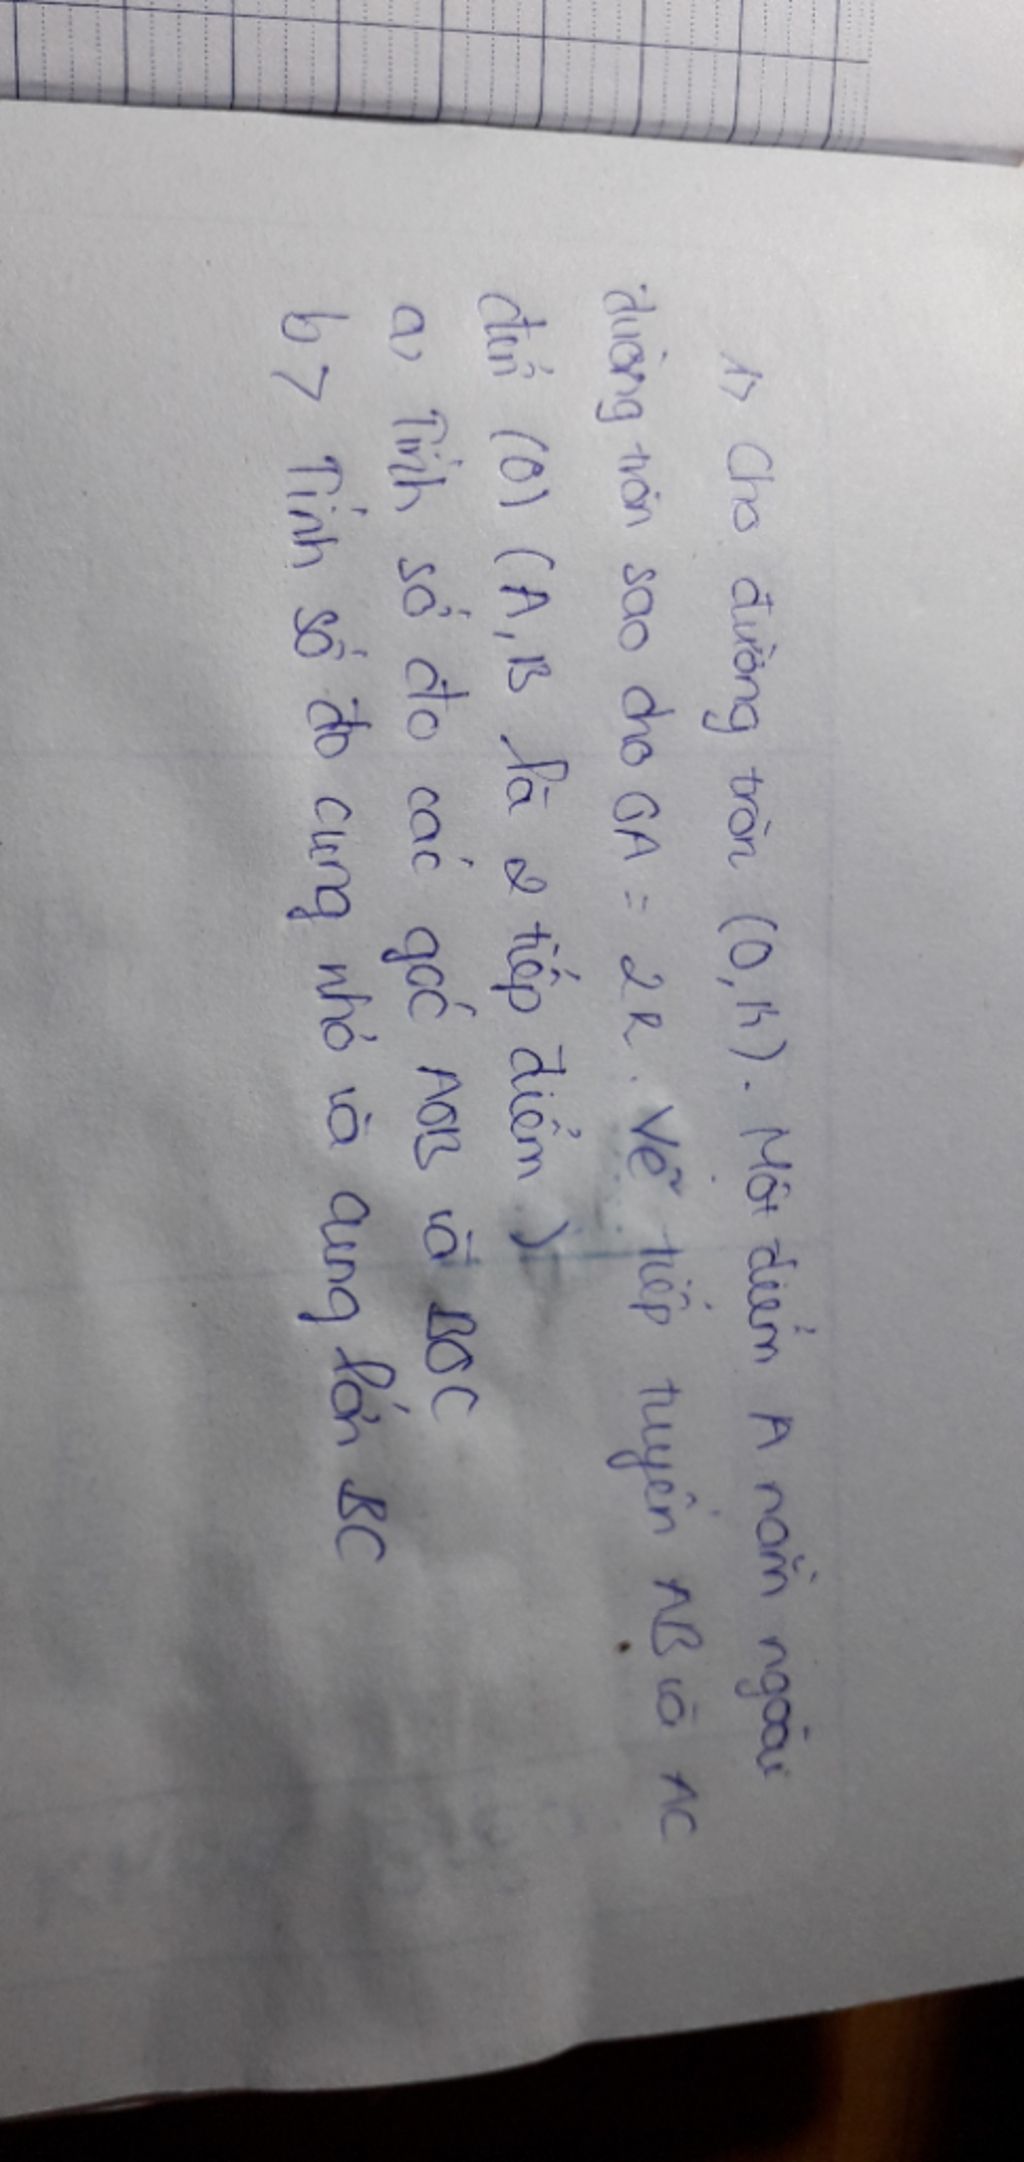 1> Cho đường tròn (O, R). Một điểm A nằm ngoài
đường tròn sao cho OA = 2R. Vẽ tiếp tuyến AB và AC
đến (O) (A, B là 2 tiếp điểm)
a, Tính số đo các góc AOB và BOC
b> Tính số đo cung nhỏ và cung lớn BC